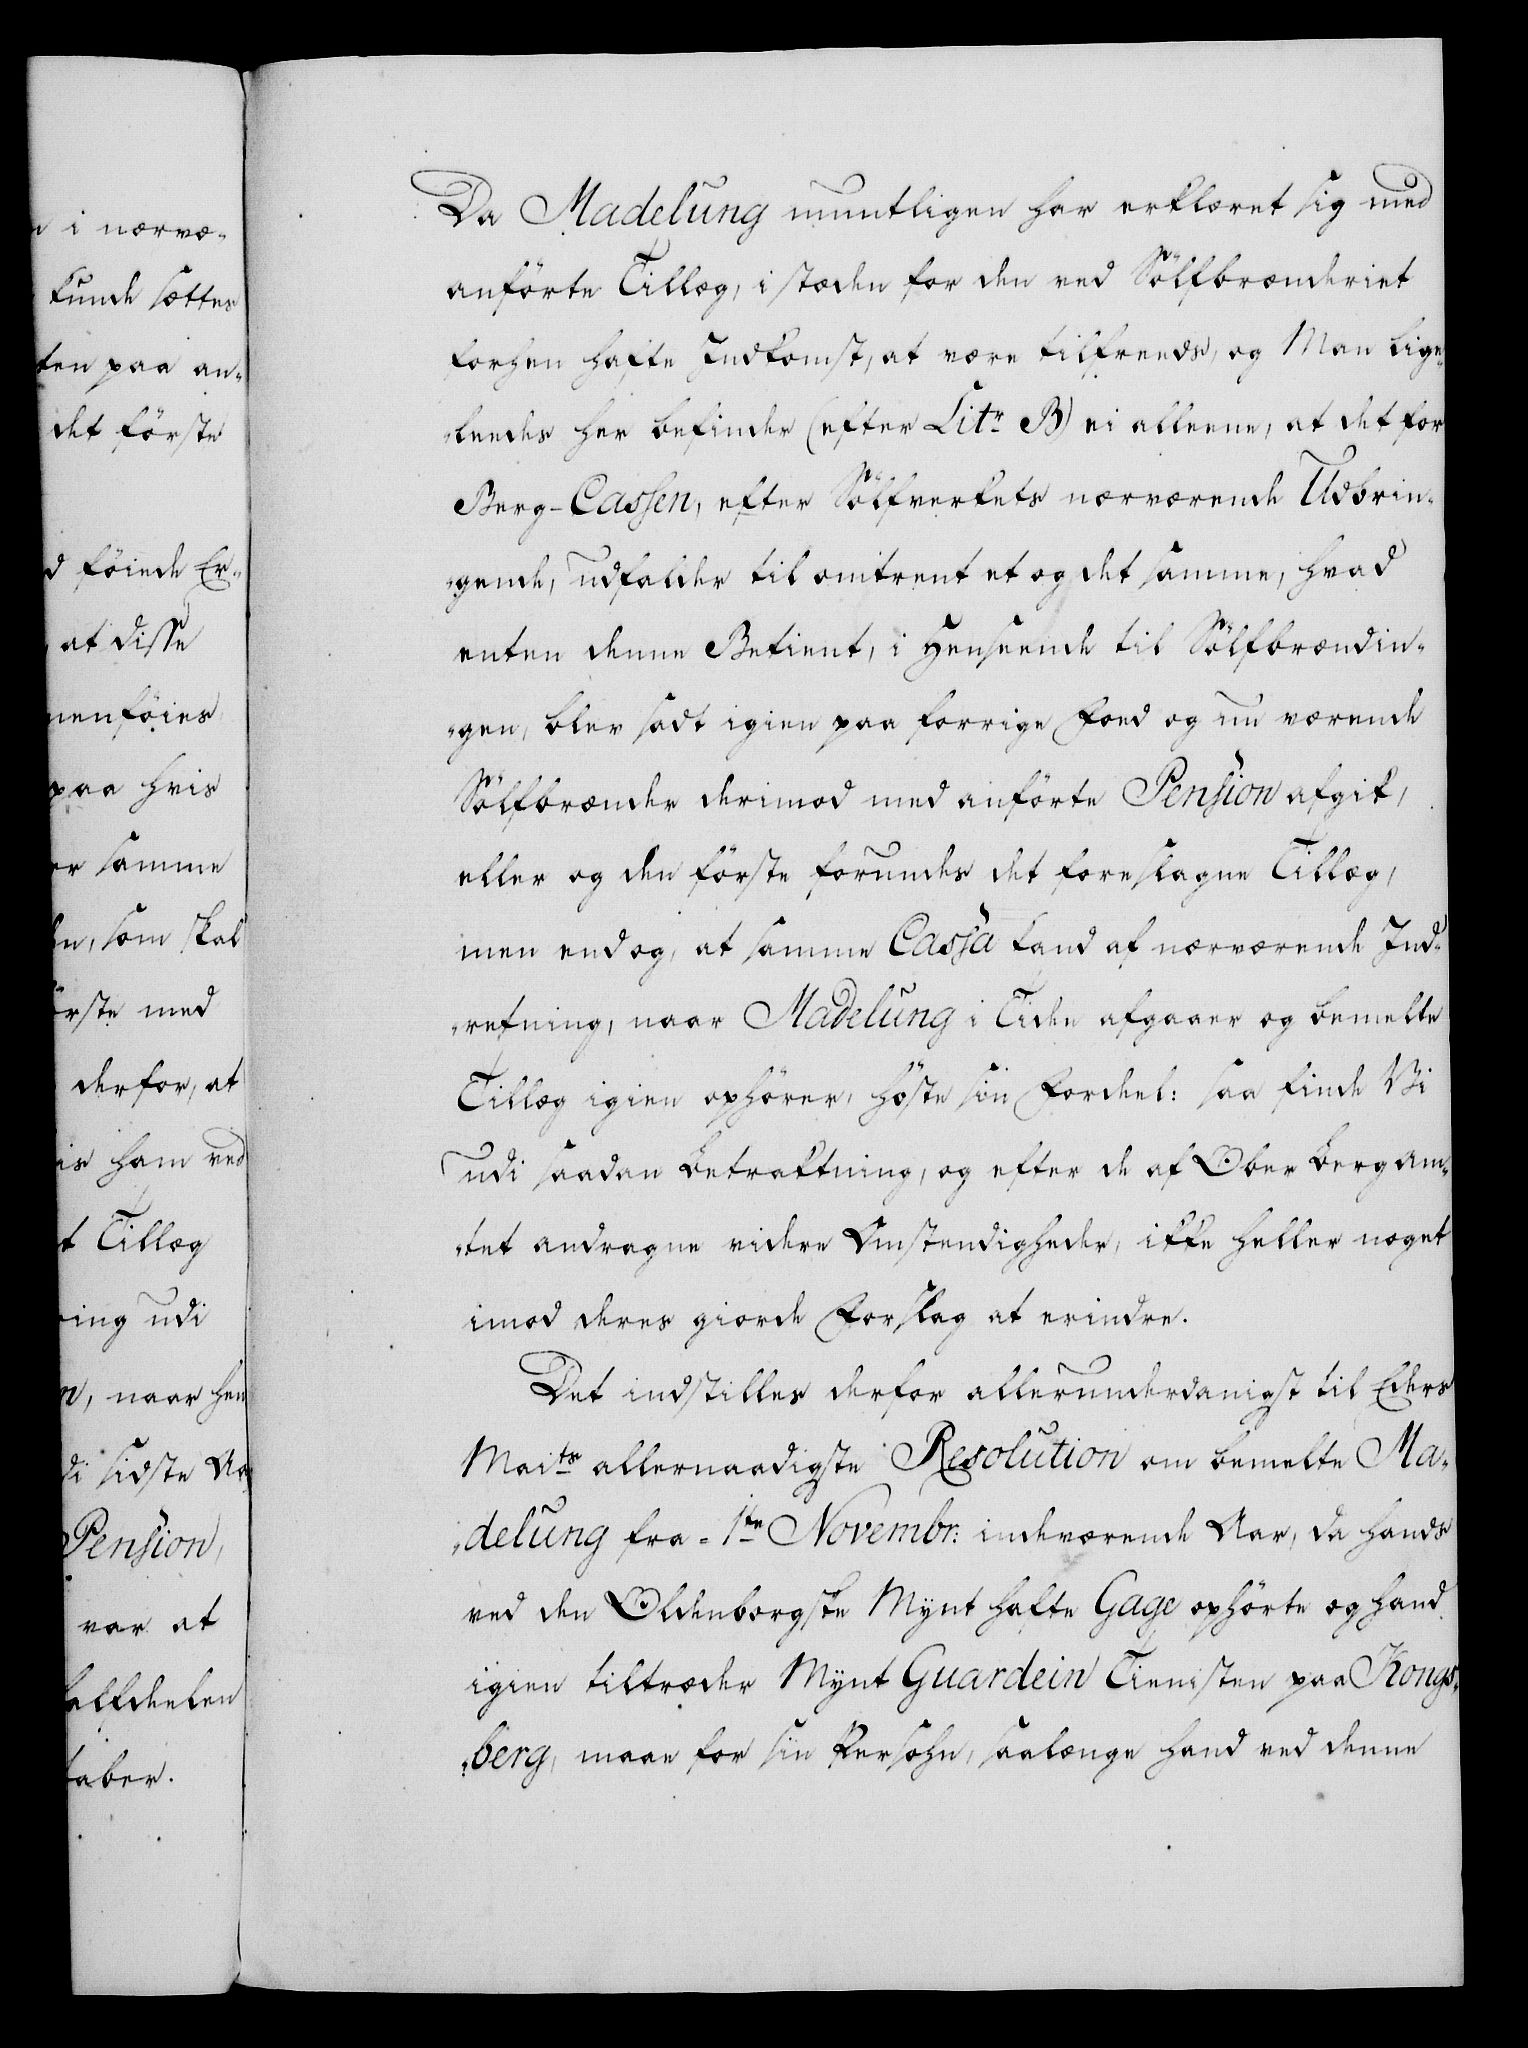 n i nærvæ-
kunde sættes
ten paa an-
det förste
d föiede Er-
at disse
menföies
paa hvis
er samme
en, som skal
örste med
derfor, at
is ham ved
t Tillæg
ring udi
n, naar hen
di sidste Aa
Pension,
var at
halfdeelen
taber.
Da Madelung mundtligen har erklæret sig med
anförte Tillæg, i stæden for den ved Sölfbrænderiet
forhen hafte Indkomst, at være tilfreeds, og Man lige-
-leedes her befinder (efter Litr B) ei alleene, at det for
Berg-Cassen, efter Sölfverkets nærværende Udbrin-
-gende, udfalder til omtrent et og det samme, hvad
enten denne Betient, i Henseende til Sölfbrændin-
-gen, blev sadt igien paa forrige Foed og nu værende
Sölfbrænder derimod med anförte Pension afgik,
eller og den förste forundes det foreslagne Tillæg,
men endog, at samme Cassa kand af nærværende Ind-
-retning, naar Madelung i Tiden afgaaer og bemelte
Tillæg igien ophörer, höste sin Fordeel: saa finde Vi
udi saadan Betraktning, og efter de af Ober Berg Am-
-tet andragne videre Omstendigheder, ikke heller noget
imod deres giorde Forslag at erindre.
Det indstilles derfor allerunderdanigst til Eders
Maits allernaadigste Resolution om bemelte Ma-
-delung fra 1te Novembr: indeværende Aar, da hands
ved den Oldenborgske Mynt hafte Gage ophörte og hand
igien tiltræder Mynt Guardein Tienisten paa Kongs-
-berg, maae for sin Persohn, saalænge hand ved denne